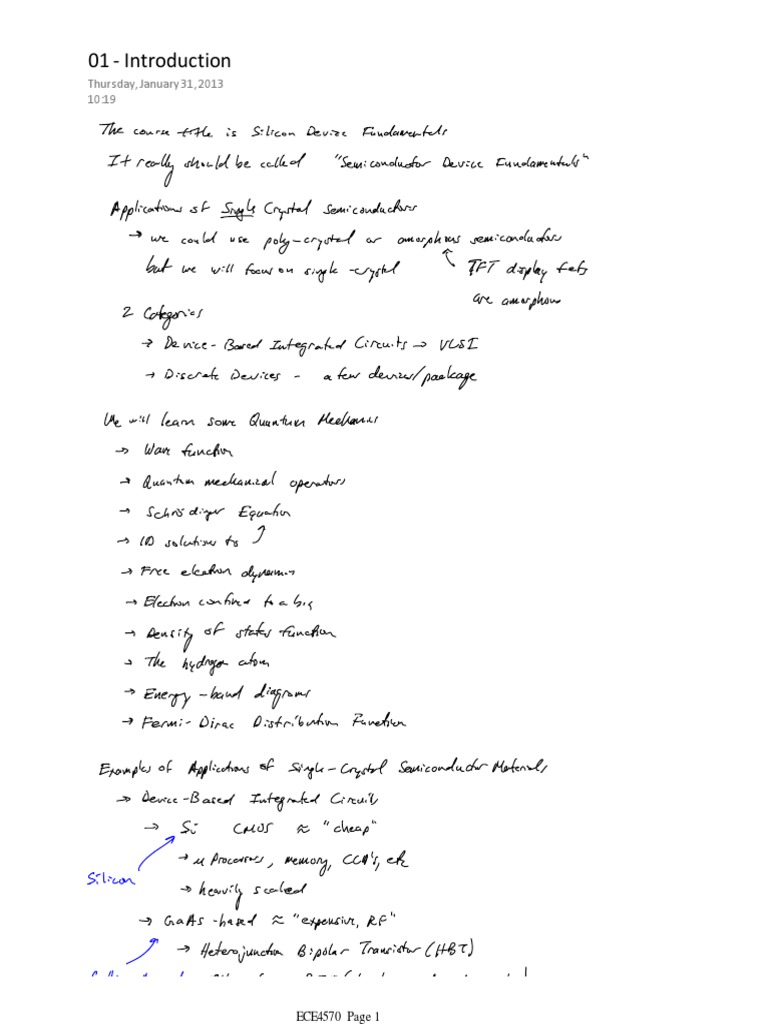 01 - Introduction
Thursday, January 31, 2013
10:19
The course title is Silicon Device Fundamentals
It really should be called "Semiconductor Device Fundamentals"
Applications of Single Crystal Semiconductors
→ we could use poly-crystal or amorphous semiconductors
but we will focus on single-crystal
TFT display fets
are amorphous
2 Categories
→ Device-Based Integrated Circuits → VLSI
→ Discrete Devices - a few devices/package
We will learn some Quantum Mechanics
→ Wave function
→ Quantum mechanical operators
→ Schrödiger Equation
→ 1D solutions to
→ Free electron dynamics
→ Electron confined to a
→ Density of states function
→ The hydrogen atom
→ Energy-band diagrams
→ Fermi-Dirac Distribution Function
Examples of Applications of Single-Crystal Semiconductor Materials
→ Device-Based Integrated Circuits
→ Si CMOS ≈ "cheap"
→ μProcessors, memory, CCD's, etc
Silicon
→ heavily scaled
→ GaAs-based ≈ "expensive, RF"
→ Heterojunction Bipolar Transistor (HBT)
ECE4570 Page 1